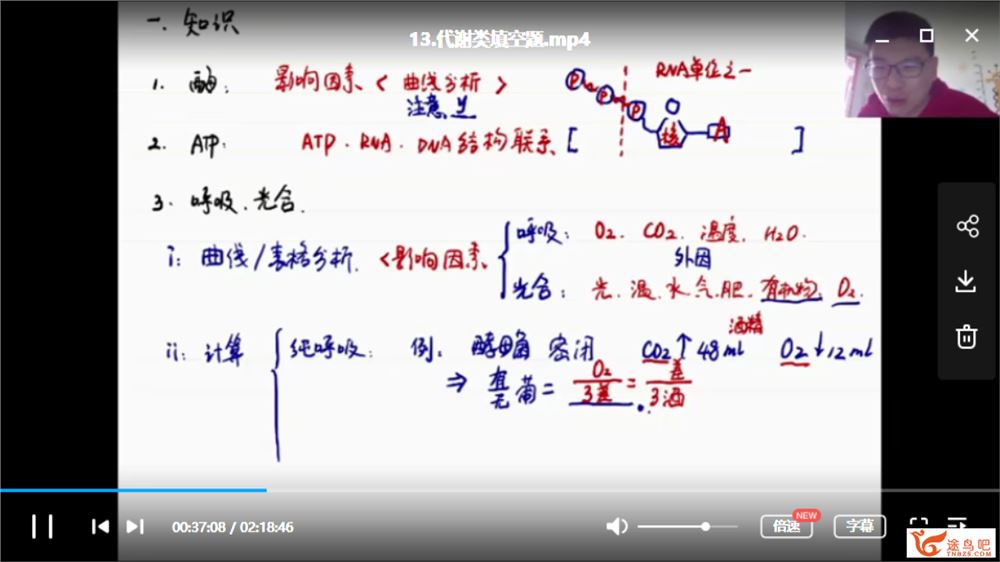 一、知识
13.代谢类填空题.mp4
1. 酶: 影响因素 < 曲线分析 >
注意
RNA单位之一
P P P 核 A
2. ATP: ATP、RNA、DNA结构联系 [ ]
3. 呼吸、光合.
i: 曲线/表格分析. <影响因素
呼吸: O2、CO2、温度、H2O.
外因
光合: 光、温、水、气、肥、有机物、O2.
ii: 计算
纯呼吸: 例: 酵母菌 密闭 CO2↑48ml O2↓12ml
酒精
⇒ 有/无 葡 = O2/3差 = 差/3酒
00:37:08 / 02:18:46
倍速
NEW
字幕
途鸟吧
TNBZS.COM